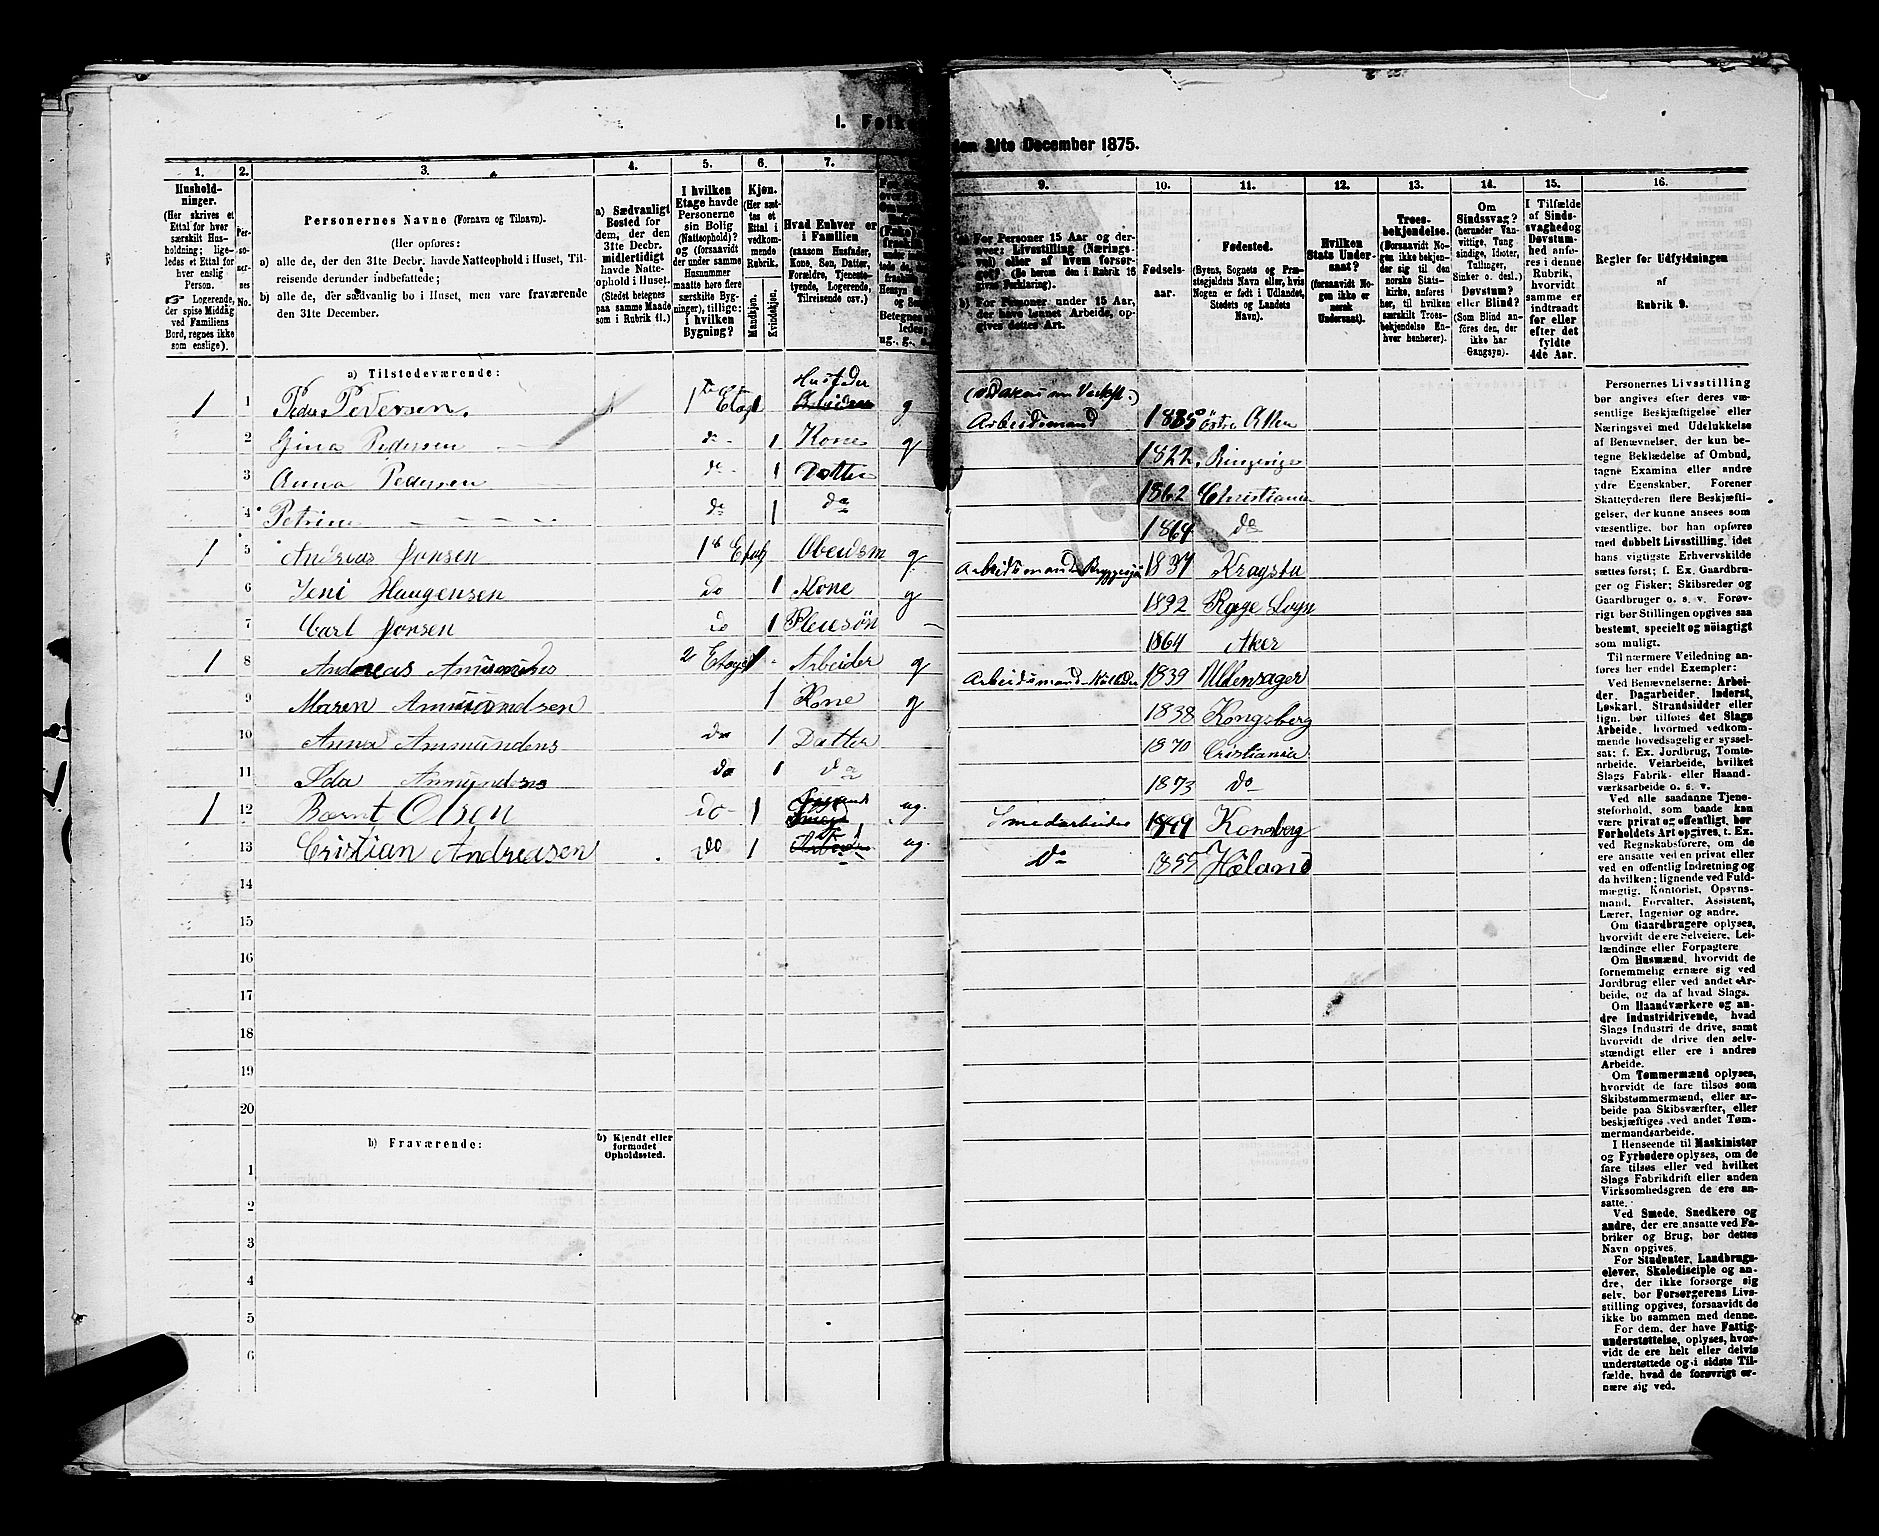 1. Folke
den 31te December 1875.
1.
2.
3.
4.
5.
6.
7.
9.
10.
11.
12.
13.
14.
15.
16.
Hushold-
ninger.
(Her skrives et
Ettal for hver
særskilt Hus-
holdning; lige-
ledes et Ettal for
hver enslig
Person.
Logerende,
der spise Middag
ved Familiens
Bord, regnes ikke
som enslige).
Per-
so-
ner-
nes
No.
Personernes Navne (Fornavn og Tilnavn).
(Her opføres:
a) alle de, der den 31te Decbr. havde Natteophold i Huset, Til-
reisende derunder indbefattede;
b) alle de, der sædvanlig bo i Huset, men vare fraværende
den 31te December.
a) Sædvanligt
Bosted for
dem, der den
31te Decbr.
midlertidigt
havde Natte-
ophold i Huset.
(Stedet betegnes
paa samme Maade
som i Rubrik 11.)
I hvilken
Etage havde
Personerne
sin Bolig
(Natteophold)?
og (forsaavidt
der under samme
Husnummer
maatte høre flere
særskilte Byg-
ninger), tillige:
i hvilken
Bygning?
Kjøn.
(Her sæt-
tes et
Ettal i
vedkom-
mende
Rubrik.
Mandkjøn.
Kvindekjøn.
Hvad Enhver er
i Familien
(saasom Husfader,
Kone, Søn, Datter,
Forældre, Tjeneste-
tyende, Logerende,
Tilreisende osv.)
ug., g.,
a) For Personer 15 Aar og der-
over: Livsstilling (Nærings-
vei) eller af hvem forsør-
get? (Se herom den i Rubrik 16
givne Forklaring).
b) For Personer under 15 Aar,
der have lønnet Arbeide, op-
gives dettes Art.
Fødsels-
aar.
Fødested.
(Byens, Sognets og Præ-
stegjeldets Navn eller, hvis
Nogen er født i Udlandet,
Stedets og Landets
Navn).
Hvilken
Stats Under-
saat?
(forsaavidt No-
gen ikke er
norsk
Undersaat).
Troes-
bekjendelse.
(Forsaavidt No-
gen ikke bekjen-
der sig til den
norske Stats-
kirke, anføres
her, til hvilken
særskilt Troes-
bekjendelse En-
hver henhører).
Om
Sindssvag?
(herunder Van-
vittige, Tung-
sindige, Idioter,
Tullinger,
Sinker o. desl.)
Døvstum?
eller Blind?
(Som Blind an-
føres den, der
ikke har
Gangsyn).
I Tilfælde
af Sinds-
svaghed og
Døvstum-
hed anfø-
res i denne
Rubrik,
hvorvidt
samme er
indtraadt
før eller
efter det
fyldte
4de Aar.
Regler for Udfyldningen
af
Rubrik 9.
a) Tilstedeværende:
1 1 Peder Pedersen. 1ste Etage 1 Husfader g Arbeidsmand 1835 Østre Aker
2 Gina Pedersen do 1 Kone g 1822 Ringerige
3 Anna Pedersen do 1 Datter 1862 Christiania
4 Petrine do 1 do 1864 do
1 5 Andreas Jonsen g Arbeidsmand 1837
6 Jeni Haugensen do 1 Kone g 1832
7 Carl Jonsen do 1 Pleiesøn 1864 Aker
1 8 Andreas Amundsen 2 Etage 1 Arbeider g Arbeidsmand 1839 Ullensager
9 Maren Amundsen 1 Kone g 1838 Kongsberg
10 Anna Ammundens do 1 Datter 1870 Cristiania
11 Ida Amundens do 1 do 1873 do
1 12 Barnt Olsen do 1 ug. Smedarbeider Konsberg
13 Cristian Andreasen do 1 ug. do 1855 Høland
14
15
16
17
18
19
20
b) Fraværende:
b) Kjendt eller
formodet
Opholdssted.
1
2
3
4
5
6
Personernes Livsstilling
bør angives efter deres væ-
sentlige Beskjæftigelse eller
Næringsvei med Udelukkelse
af Benævnelser, der kun be-
tegne Beklædelse af Ombud,
tagne Examina eller andre
ydre Egenskaber. Forener
Skatteyderen flere Beskjæfti-
gelser, der kunne ansees som
væsentlige, bør han opføres
med dobbelt Livsstilling, idet
hans vigtigste Erhvervskilde
sættes først; f. Ex. Gaardbru-
ger og Fisker; Skibsreder og
Gaardbruger o. s. v. Forøv-
rigt bør Stillingen opgives saa
bestemt, specielt og nøiagtig
som muligt.
Til nærmere Veiledning an-
føres her endel Exempler:
Ved Benævnelserne: Arbei-
der, Dagarbeider, Inderst,
Løskarl, Strandsidder eller
lign. bør tilføres det Slags
Arbeide, hvormed vedkom-
mende hovedsagelig er syssel-
sat; f. Ex. Jordbrug, Tomte-
arbeide, Veiarbeide, hvilket
Slags Fabrik- eller Haand-
værksarbeide o. s. v.
Ved alle saadanne Tjene-
steforhold, som baade kan
være privat og offentligt, bør
Forholdets Art opgives, t. Ex.
ved Regnskabsførere, om de
ere ansatte ved en privat eller
ved en offentlig Indretning og
da hvilken; lignende ved Fuld-
mægtig, Kontorist, Opsyns-
mand, Forvalter, Assistent,
Lærer, Ingeniør og andre.
Om Gaardbrugere oplyses,
hvorvidt de ere Selveiere, Lei-
lændinge eller Forpagtere
Om Husmænd, hvorvidt de
fornemmelig ernære sig ved
Jordbrug eller ved andet Ar-
beide, og da af hvad Slags.
Om Haandværkere og an-
dre Industridrivende, hvad
Slags Industri de drive, samt
hvorvidt de drive den selv-
stændigt eller ere i andres
Arbeide.
Om Tømmermænd oplyses,
hvorvidt de fare tilsøs som
Skibstømmermænd, eller ar-
beide paa Skibsværfter, eller
beskjæftiges ved andet Tøm-
mermandsarbeide.
I Henseende til Maskinister
og Fyrbødere oplyses, om de
fare tilsøs eller ved hvilket
Slags Fabrikdrift eller anden
Virksomhedsgren de ere an-
satte.
Ved Smede, Snedkere og
andre, der ere ansatte ved Fa-
briker og Brug, bør dettes
Navn opgives.
For Studenter, Landbrugs-
elever, Skoledisciple og an-
dre, der ikke forsørge sig
selv, bør Forsørgerens Livs-
stilling opgives, forsaavidt de
ikke bo sammen med denne.
For dem, der have Fattig-
understøttelse, oplyses, hvor-
vidt de ere helt eller delvis
understøttede og i sidste Til-
fælde, hvad de forøvrigt er-
nære sig ved.